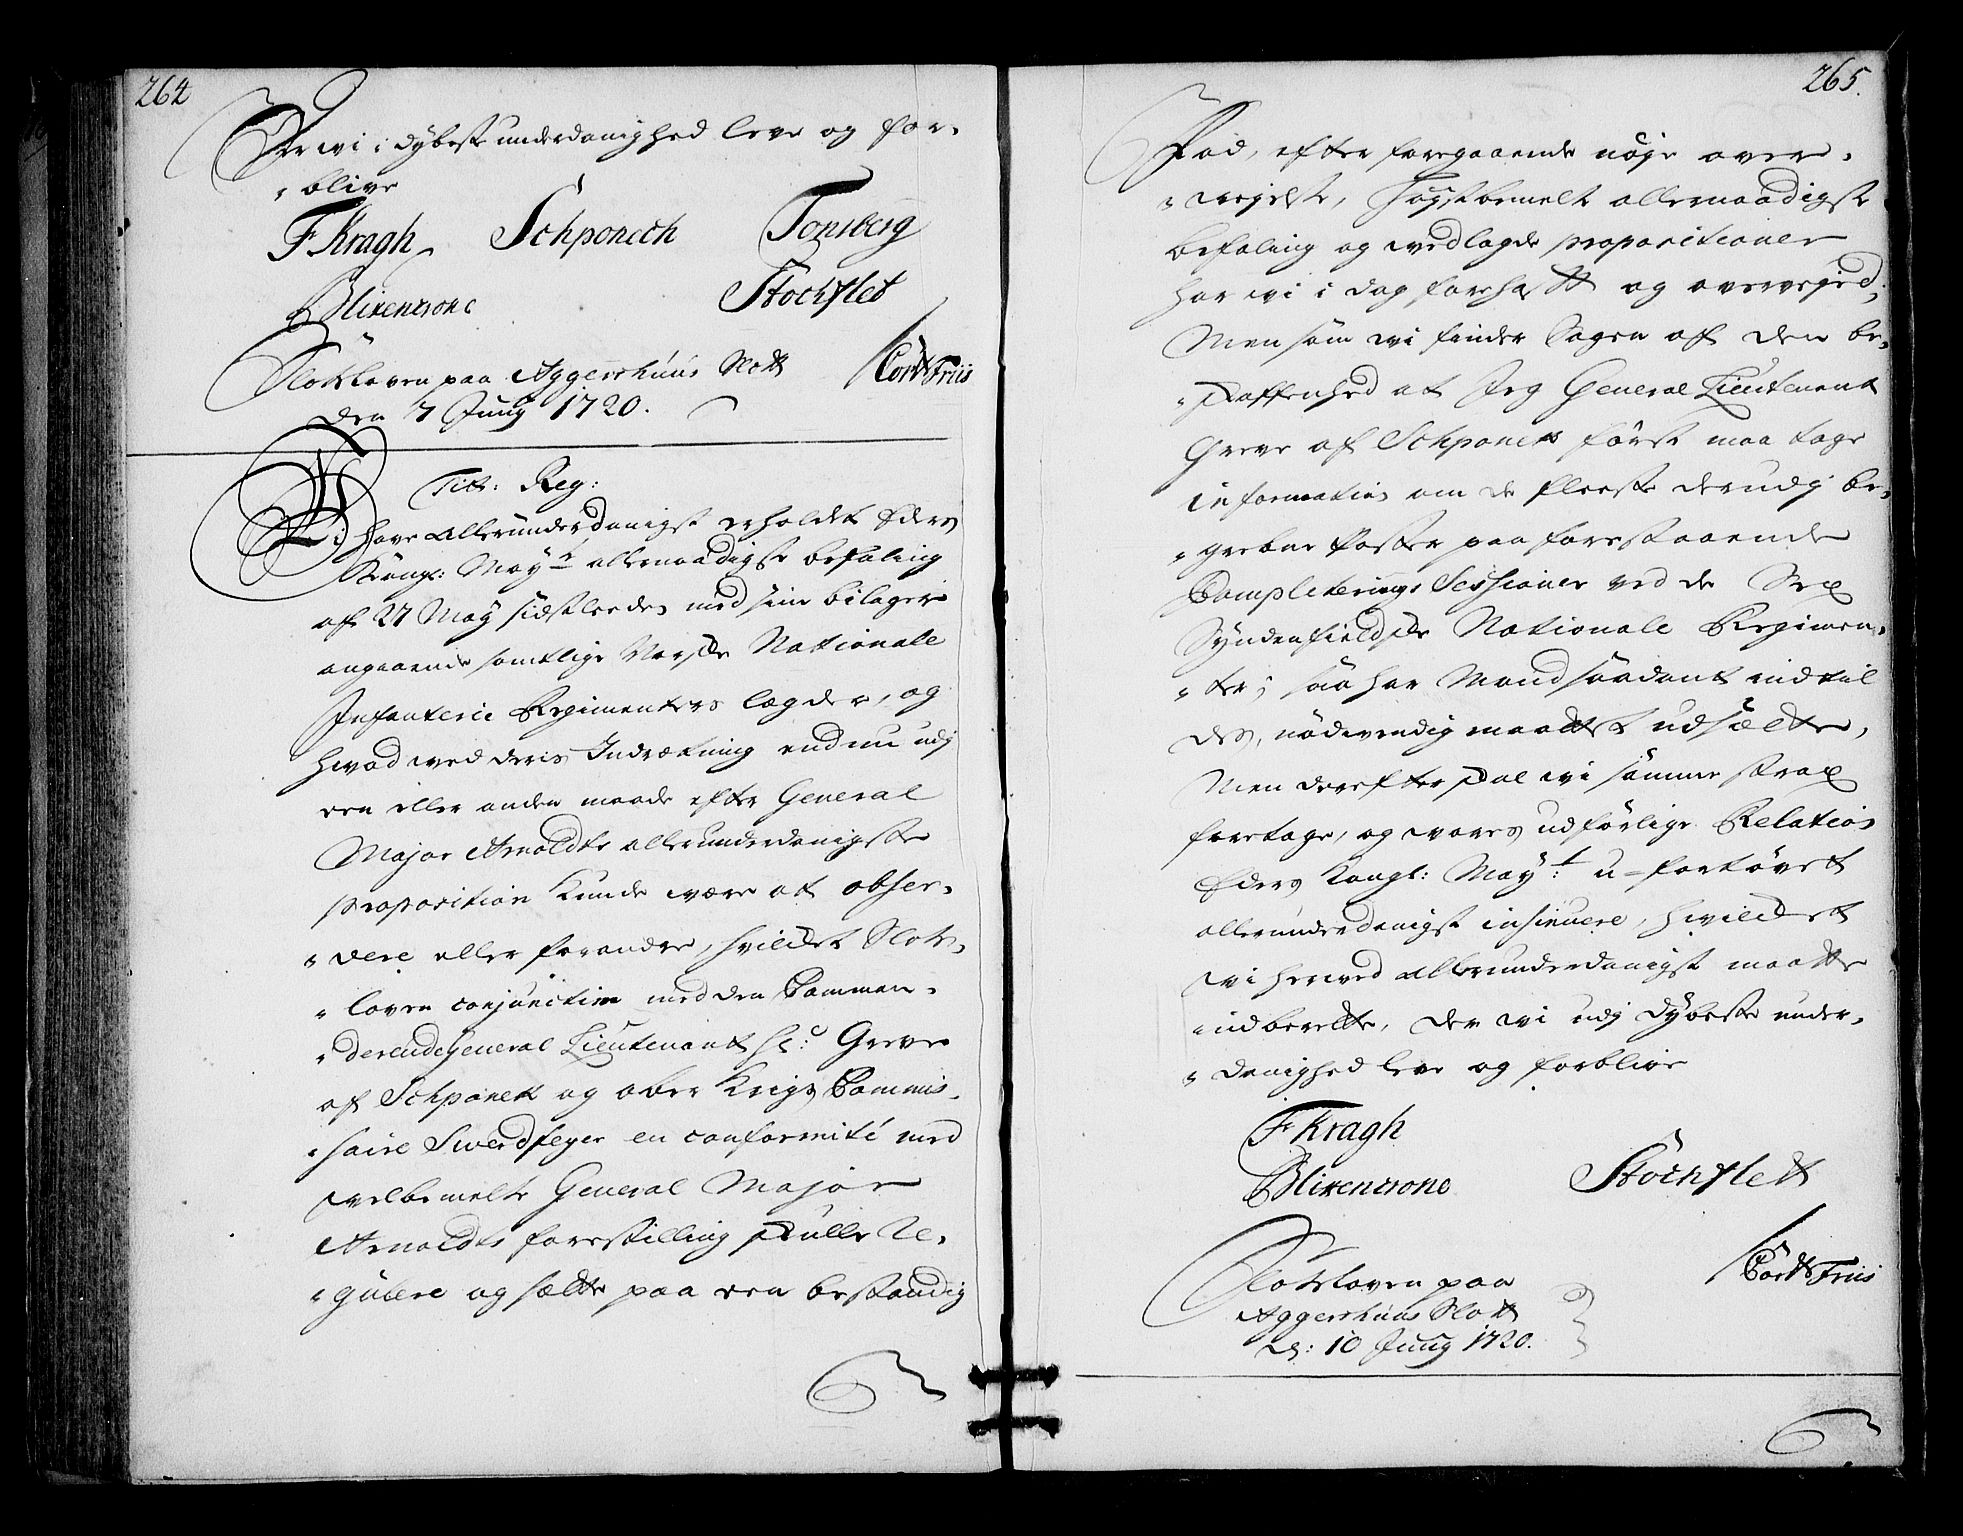 264
Er wi i dybeste underdanighed leve og for-
"blive
F Kragh Schponeck Tonsberg
Blixencrone Stochflet
Slotzloven paa Aggershuus Slott Cordt Friis
den 7 Juny 1720.
Titt: Reg:
Wi have allerunderdanigst erholdet Eders
Kongl: Mayts allernaadigste befaling
af 27 May sidstleeden med sine bilager
angaaende samtlige Norske Nationale
Infanterie Regimenters lægder, og
hvad ved deris Indrætning endnu udj
een eller anden maade efter General
Major Arnoldts allerunderdanigste
proposition kunde være at obser-
"vere eller forandre, hvilcket Slots-
"loven conjunctim med den Comman-
"derende General Lieutenant Hr: Greve
af Schponek og ober Krigs Commis-
"saire Swerdfeger en conformité med
velbemelte General Major
Arnoldts forestilling skulle re-
"gulere og sætte paa een bestandig
265.
Fod, efter foregaaende nøye over-
"vejelse, Høystbemelte allernaadigste
befaling og vedlagde propositioner
har wi i dag forehaftt og overvejed;
Men som wi finder Sagen af den be-
"skaffenhed at Jeg General Lieutenant
Greve af Schponek først maa tage
information om de fleeste derudj be-
"grebne Poster paa forestaaende
Completerings Sessioner ved de Sex
Syndenfieldske Nationale Regimen-
"ter; saa har Mand saadant indtil
des, nødvendig maattet udsætte,
Men derefter skal wi samme strax
foretage, og vores udførlige Relation
Eders Kongl: Mayt: u-fortøvet
allerunderdanigst insinuere, hvilcket
wi herved allerunderdanigst maatte
indberette, der wi udj dybeste under-
"danighed leve og forblive
F Kragh
Blixencrone Stochflett
Slotzloven paa Cordt Friis
Aggershuus Slott
d: 10 Juny 1720.